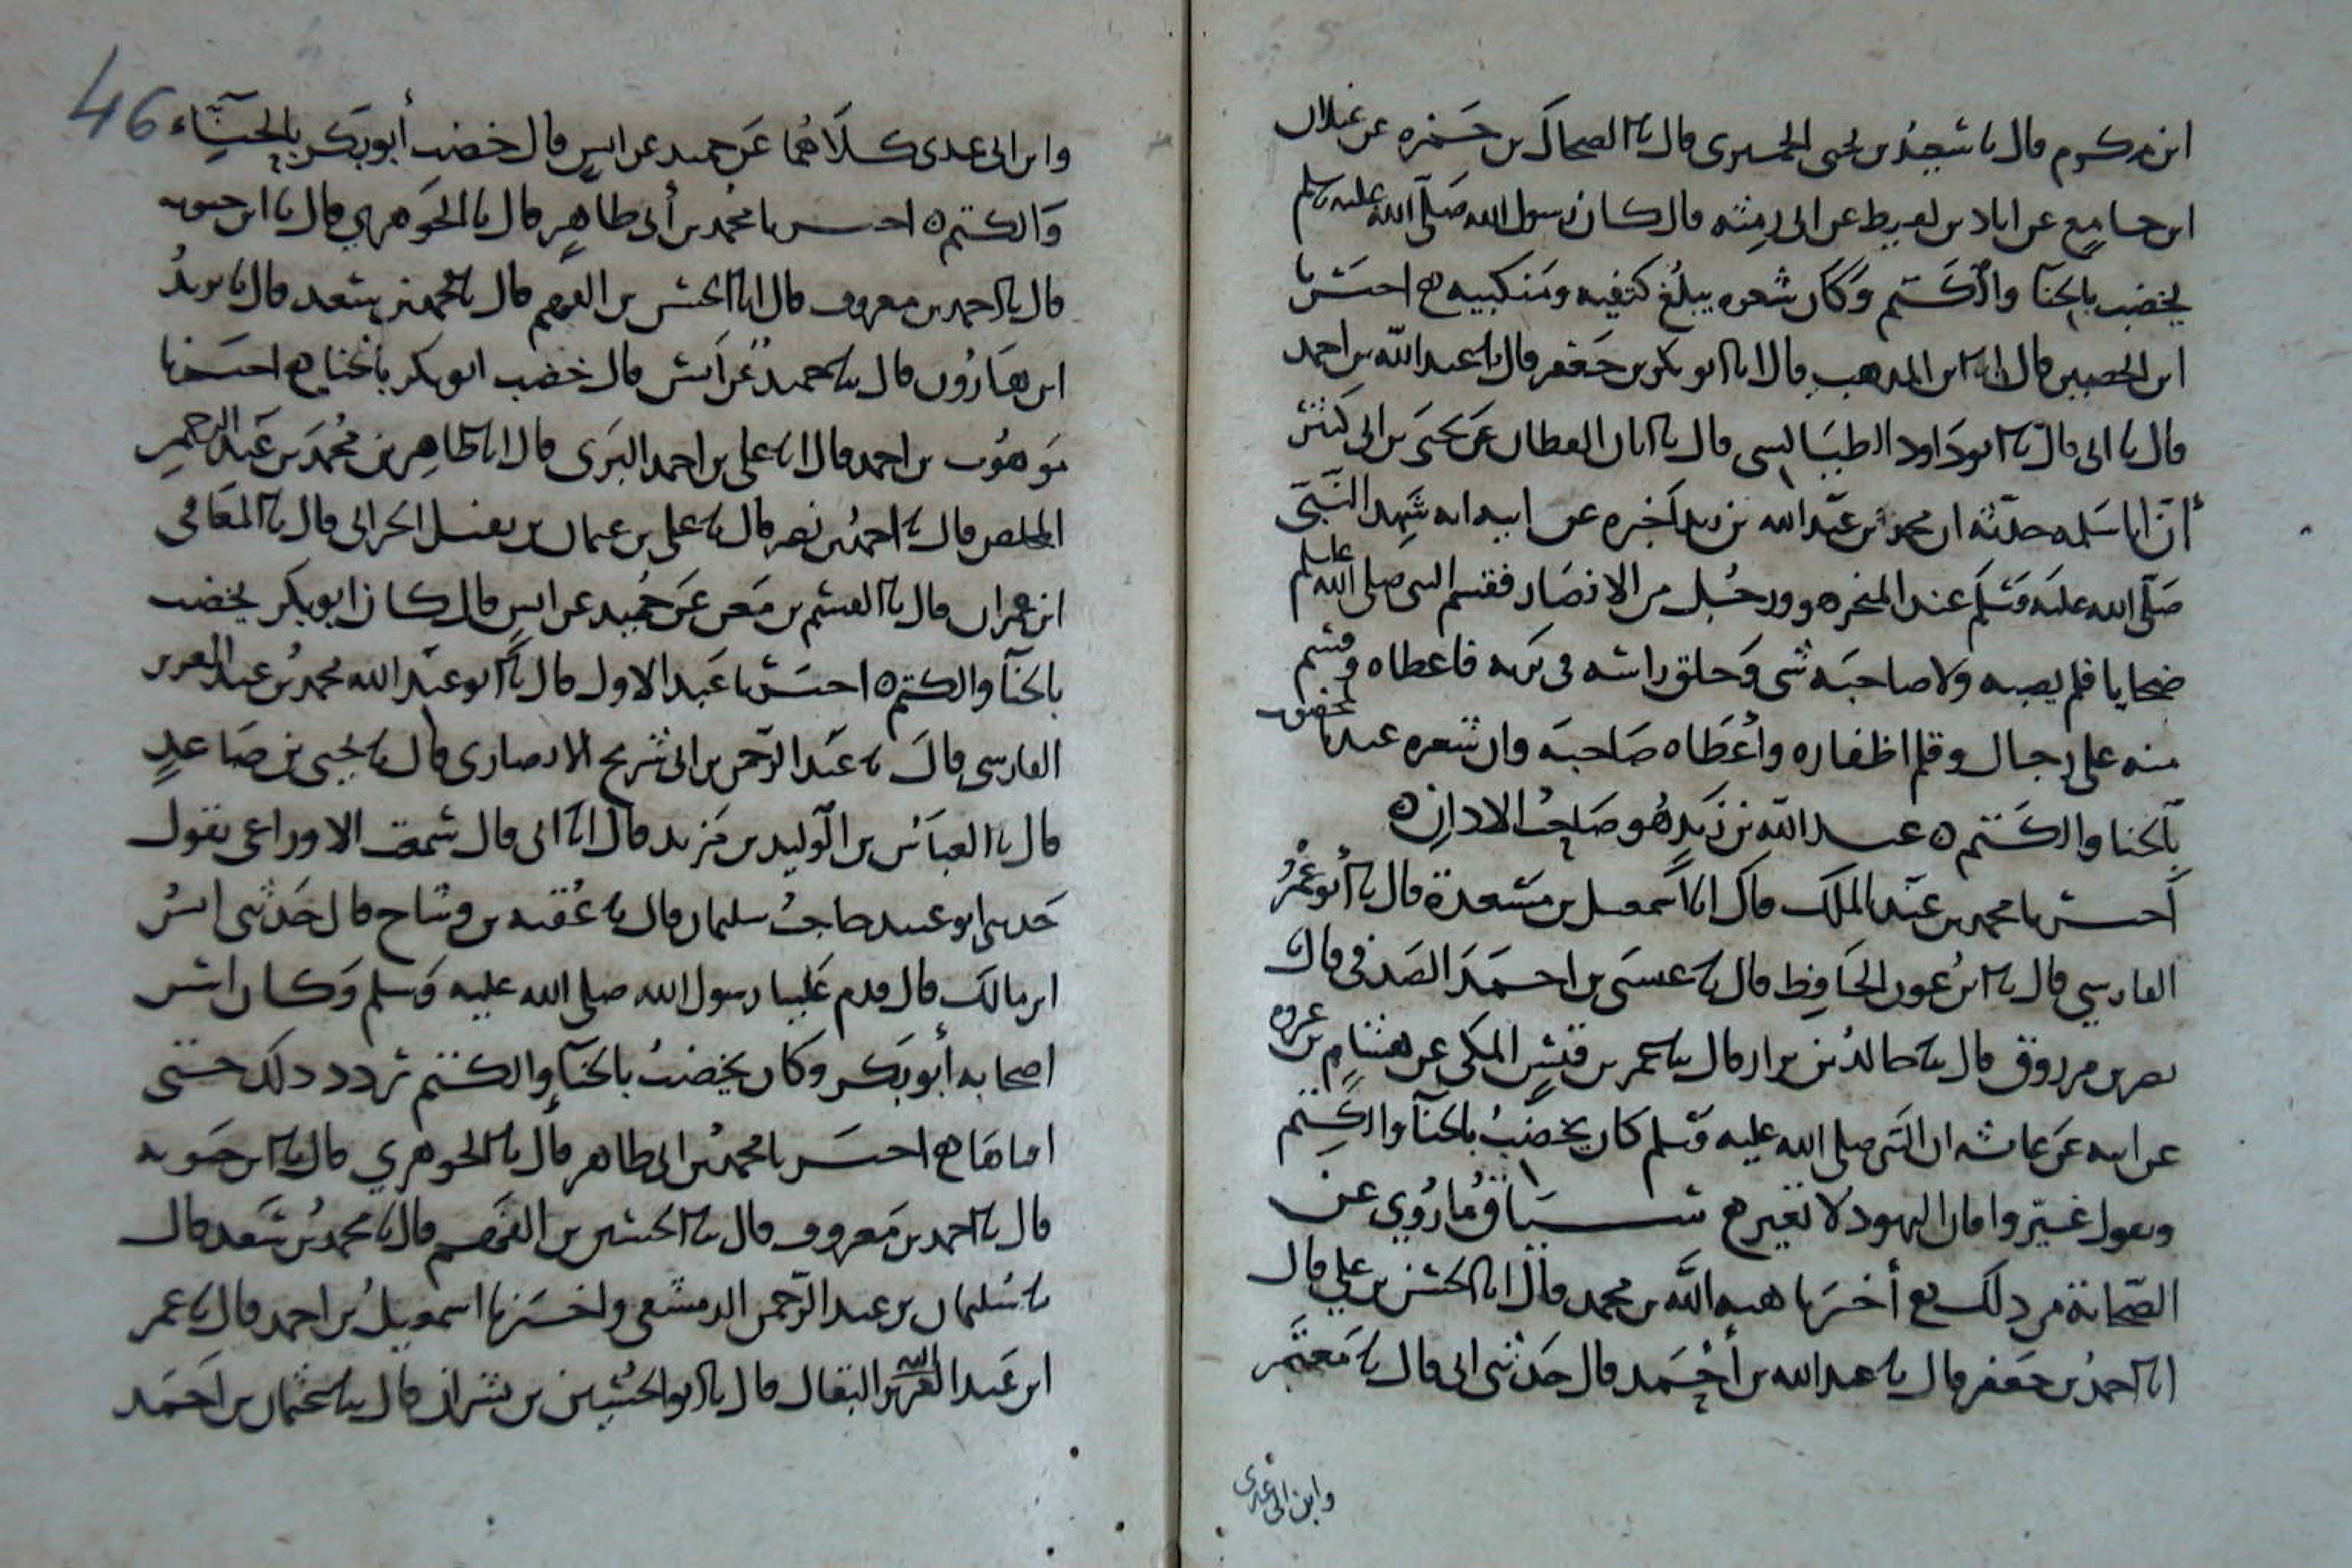 ابن مكرم قال نا سعيد بن يحيى الحميرى قال نا الضحاك بن حمزه عن غيلان
ابن جامع عن اياد بن لقيط عن ابى رمثه قال كان رسول الله صلى الله عليه وسلم
يخضب بالحنا والكتم وكان شعره يبلغ كتفيه ومنكبيه ه اخبرنا
ابن الحصين قال انا ابن المذهب قال انا ابو بكر بن جعفر قال نا عبد الله بن احمد
قال نا ابى قال نا ابو داود الطيالسى قال نا ابان العطار عن يحيى بن ابى كثير
أن ابا سلمه حدثه ان محمد بن عبد الله بن زيد اخبره عن ابيه انه شهد النبى
صلى الله عليه وسلم عند المنحر هو ورجل من الانصار فقسم النبى صلى الله عليه وسلم
ضحايا فلم يصبه ولا صاحبه شى وحلق راسه فى ثوبه فاعطاه وقسم
منه على رجال وقلم اظفاره وأعطاه صاحبه وان شعره عندنا لمخضوب
بالحنا والكتم ه عبد الله بن زيد هو صاحب الاذان ه
أخبرنا محمد بن عبد الملك قال انا اسمعيل بن مسعدة قال نا أبو عمرو
الفارسي قال نا ابن عدى الحافظ قال نا عيسى بن احمد الصدفى قال
نصر بن مرزوق قال نا خالد بن نزار قال نا عمر بن قيس المكى عن هشام بن عروه
عن ابيه عن عائشه ان النبى صلى الله عليه وسلم كان يخضب بالحنا والكتم
ويقول غيروا فان اليهود لا تغير ه سياق ما روي عن
الصحابة من ذلك ه أخبرنا هبه الله بن محمد قال انا الحسن بن علي قال
انا احمد بن جعفر قال نا عبد الله بن أحمد قال حدثنى ابى قال نا معتمر
وابن ابى عدى
46
وابن ابى عدى كلاهما عن حميد عن انس قال خضب أبو بكر بالحناء
والكتم ه اخبرنا محمد بن أبى طاهر قال نا الجوهري قال نا ابن حيويه
قال نا احمد بن معروف قال انا الحسين بن الفهم قال نا محمد بن سعد قال نا يزيد
ابن هارون قال نا حميد عن انس قال خضب ابو بكر بالحنا ه اخبرنا
موهوب بن احمد قال انا على بن احمد البسرى قال انا طاهر بن محمد بن عبد الرحمن
المخلص قال نا احمد بن نصر قال نا على بن عثمان بن نفيل الحرانى قال نا المعافى
ابن عمران قال نا القسم بن معن عن حميد عن انس قال كان ابو بكر يخضب
بالحنا والكتم ه اخبرنا عبد الاول قال نا ابو عبد الله محمد بن عبد العزيز
الفارسى قال نا عبد الرحمن بن ابى شريح الانصارى قال نا يحيى بن صاعد
قال نا العباس بن الوليد بن مزيد قال انا ابى قال سمعت الاوزاعى يقول
حدثنى ابو عبيد حاجب سليمان قال نا عقبه بن وساج قال حدثنى انس
ابن مالك قال قدم علينا رسول الله صلى الله عليه وسلم وكان اسن
اصحابه أبو بكر وكان يخضب بالحنا والكتم تردد ذلك حتى
اقناها ه اخبرنا محمد بن ابى طاهر قال نا الجوهري قال نا ابن حيويه
قال نا احمد بن معروف قال نا الحسين بن الفهم قال نا محمد بن سعد قال
نا سليمان بن عبد الرحمن الدمشقى واخبرنا اسمعيل بن احمد قال نا عمر
ابن عبيد الله البقال قال نا ابو الحسين بن بشران قال نا عثمان بن احمد